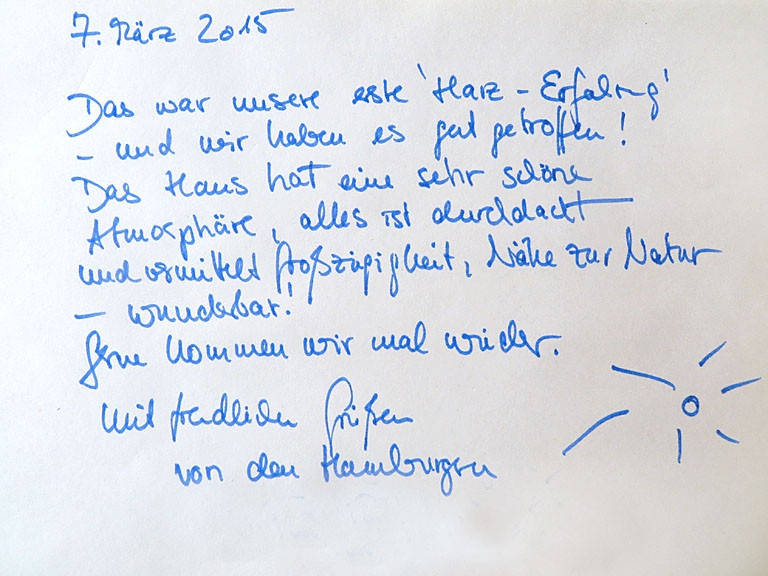 7. März 2015
Das war unsere erste 'Harz - Erfahrung'
- und wir haben es gut getroffen!
Das Haus hat eine sehr schöne
Atmosphäre, alles ist durchdacht
und vermittelt Großzügigkeit, Nähe zur Natur
- wunderbar!
Gerne kommen wir mal wieder.
Mit freundlichen Grüßen
von den Hamburgern